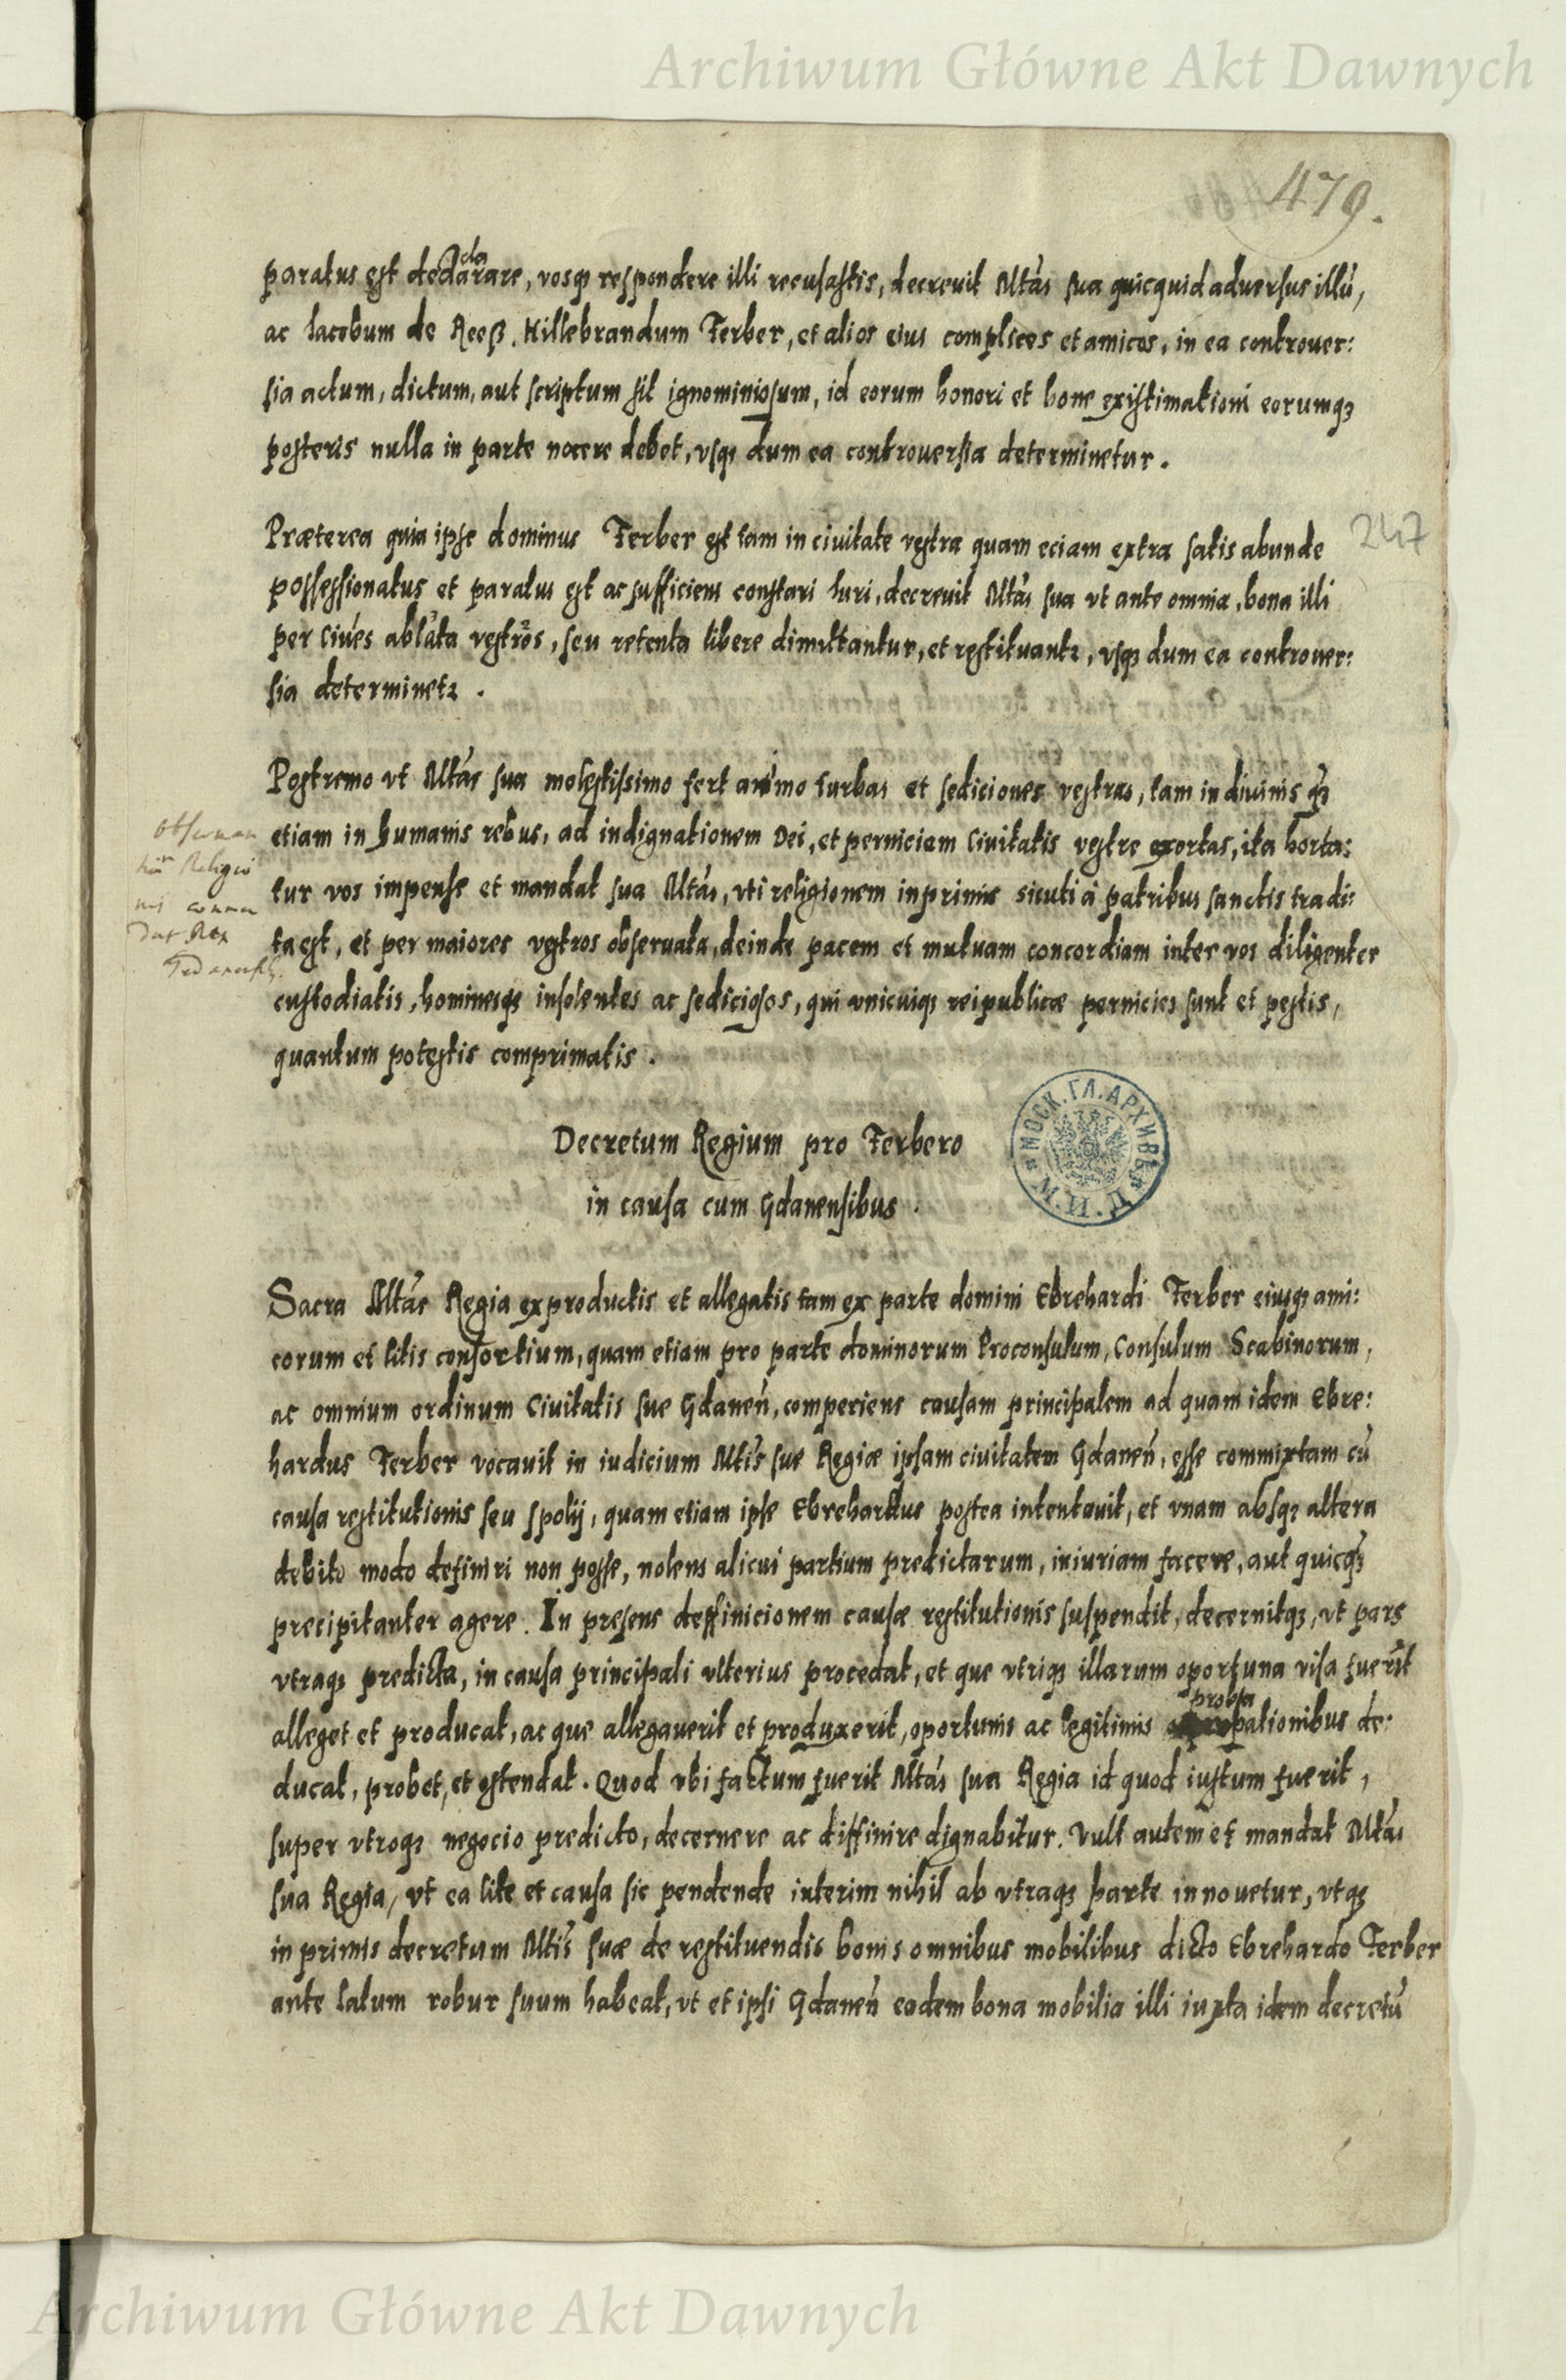 Archiwum Główne Akt Dawnych
479.
paratus est declarare, vosq3 respondere illi recusastis, decrevit Mtás sua quicquid adversus illũ,
ac Iacobum de Reeß, Hillebrandum Ferber, et alios eius complices et amicos, in ea controuer:
sia actum, dictum, aut scriptum sit ignominiosum, id eorum honori et bone existimationi eorumq3
posteris nulla in parte nocere debet, vsq3 dum ea controuersia determinetur.
Præterea quia ipse dominus Ferber est tam in ciuitate vestra quam eciam extra satis abunde
247
possessionatus et paratus est ac sufficiens constari Iuri, decreuit Mtás sua vt ante omnia, bona illi
per Ciues ablata vestros, seu retenta libere dimittantur, et restituant2, vsq3 dum ea controuer:
sia determinet2.
Postremo vt Mtás sua molestissimo fert animo turbas et sediciones vestras, tam in diuinis q̃3
etiam in humanis rebus, ad indignationem Dei, et perniciem Ciuitatis vestre exortas, ita horta:
tur vos impense et mandat sua Mtás, vti religionem inprimis sicuti à patribus sanctis tradi:
ta est, et per maiores vestros obseruata, deinde pacem et mutuam concordiam inter vos diligenter
custodiatis, hominesq3 insolentes ac sediciosos, qui vnicuiq3 reipublicæ pernicies sunt et pestis,
quantum potestis comprimatis.
Religio
nis
dat Rex
Decretum Regium pro Ferbero
in causa cum Gdanensibus.
МОСК. ГЛ. АРХИВЪ
М.И.Д.
Sacra Mtás Regia ex productis et allegatis tam ex parte domini Ebrehardi Ferber eiusq3 ami:
corum et litis consortium, quam etiam pro parte dominorum Proconsulum, Consulum Scabinorum,
ac omnium ordinum Ciuitatis sue Gdaneñ, comperiens causam principalem ad quam idem Ebre:
hardus Ferber vocauit in iudicium Mtis sue Regiæ ipsam ciuitatem Gdaneñ, esse commixtam cũ
causa restitutionis seu spolij, quam etiam ipse Ebrehardus postea intentauit, et vnam absq3 altera
debito modo definiri non posse, nolens alicui partium predictarum, iniuriam facere, aut quicq̃3
precipitanter agere. In presens deffinicionem causæ restitutionis suspendit, decernitq3, vt pars
vtraq3 predicta, in causa principali vlterius procedat, et que vtriq3 illarum oportuna visa fuerĩt
alleget et producat, ac que allegauerit et produxerit, oportunis ac legitimis probationibus de:
ducat, probet, et ostendat. Quod vbi factum fuerit Mtás sua Regia id quod iustum fuerit,
super vtroq3 negocio predicto, decernere ac diffinire dignabitur. Vult autem et mandat Mtás
sua Regia, vt ea lite et causa sic pendende interim nihil ab vtraq3 parte innouetur, vtq3
in primis decretum Mtis suæ de restituendis bonis omnibus mobilibus dicto Ebrehardo Ferber
ante latum robur suum habeat, vt et ipsi Gdaneñ eodem bona mobilia illi iuxta idem decretũ
Archiwum Główne Akt Dawnych